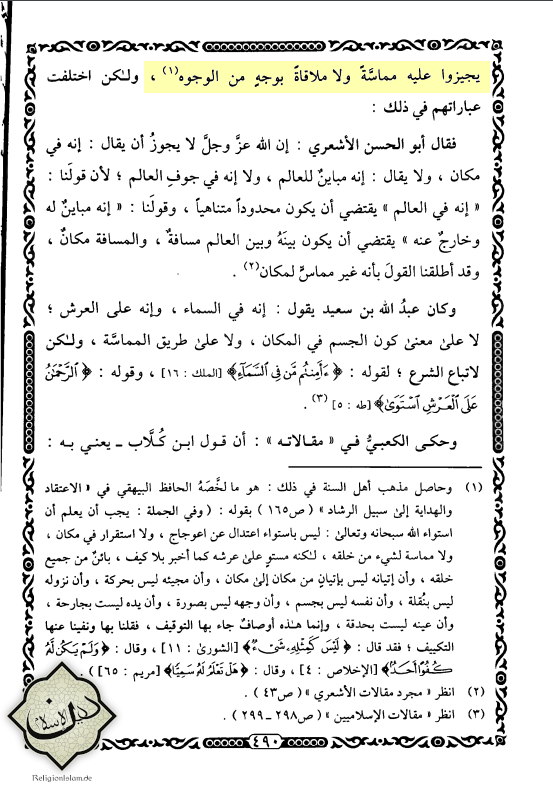 يجيزوا عليه مماسَّةً ولا ملاقاةً بوجهٍ من الوجوه(١) ، ولكن اختلفت
عباراتهم في ذلك :
فقال أبو الحسن الأشعري : إن الله عزَّ وجلَّ لا يجوزُ أن يقال : إنه في
مكان ، ولا يقال : إنه مباينٌ للعالم ، ولا إنه في جوفِ العالم ؛ لأن قولَنا :
« إنه في العالم » يقتضي أن يكون محدوداً متناهياً ، وقولَنا : « إنه مباينٌ له
وخارجٌ عنه » يقتضي أن يكون بينَهُ وبين العالم مسافةٌ ، والمسافة مكانٌ ،
وقد أطلقنا القولَ بأنه غير مماسٍّ لمكان(٢) .
وكان عبدُ الله بن سعيد يقول : إنه في السماء ، وإنه على العرش ؛
لا علىٰ معنىٰ كون الجسم في المكان ، ولا علىٰ طريق المماسَّة ، ولكن
لاتباع الشرع ؛ لقوله : ﴿ءَأَمِنتُم مَّن فِي السَّمَآءِ﴾ [الملك : ١٦] ، وقوله : ﴿الرَّحْمَٰنُ
عَلَى الْعَرْشِ اسْتَوَىٰ﴾ [طه : ٥] (٣) .
وحكى الكعبيُّ في « مقالاته » : أن قول ابن كُلَّاب ـ يعني به :
(١) وحاصل مذهب أهل السنة في ذلك : هو ما لخَّصَهُ الحافظ البيهقي في « الاعتقاد
والهداية إلىٰ سبيل الرشاد » ( ص١٦٥ ) بقوله : ( وفي الجملة : يجب أن يعلم أن
استواء الله سبحانه وتعالىٰ : ليس باستواء اعتدال عن اعوجاج ، ولا استقرار في مكان ،
ولا مماسة لشيء من خلقه ، لكنه مستوٍ علىٰ عرشه كما أخبر بلا كيف ، بائنٌ من جميع
خلقه ، وأن إتيانه ليس بإتيانٍ من مكان إلىٰ مكان ، وأن مجيئه ليس بحركة ، وأن نزوله
ليس بنُقلة ، وأن نفسه ليس بجسم ، وأن وجهه ليس بصورة ، وأن يده ليست بجارحة ،
وأن عينه ليست بحدقة ، وإنما هذه أوصافٌ جاء بها التوقيف ، فقلنا بها ونفينا عنها
التكييف ؛ فقد قال : ﴿لَيْسَ كَمِثْلِهِ شَىْءٌ﴾ [الشورىٰ : ١١] ، وقال : ﴿وَلَمْ يَكُن لَّهُ
كُفُوًا أَحَدٌ﴾ [الإخلاص : ٤] ، وقال : ﴿هَلْ تَعْلَمُ لَهُ سَمِيًّا﴾ [مريم : ٦٥] ) .
(٢) انظر « مجرد مقالات الأشعري » ( ص٤٣ ) .
(٣) انظر « مقالات الإسلاميين » ( ص٢٩٨ ـ ٢٩٩ ) .
٤٩٠
دين الإسلام
ReligionIslam.de